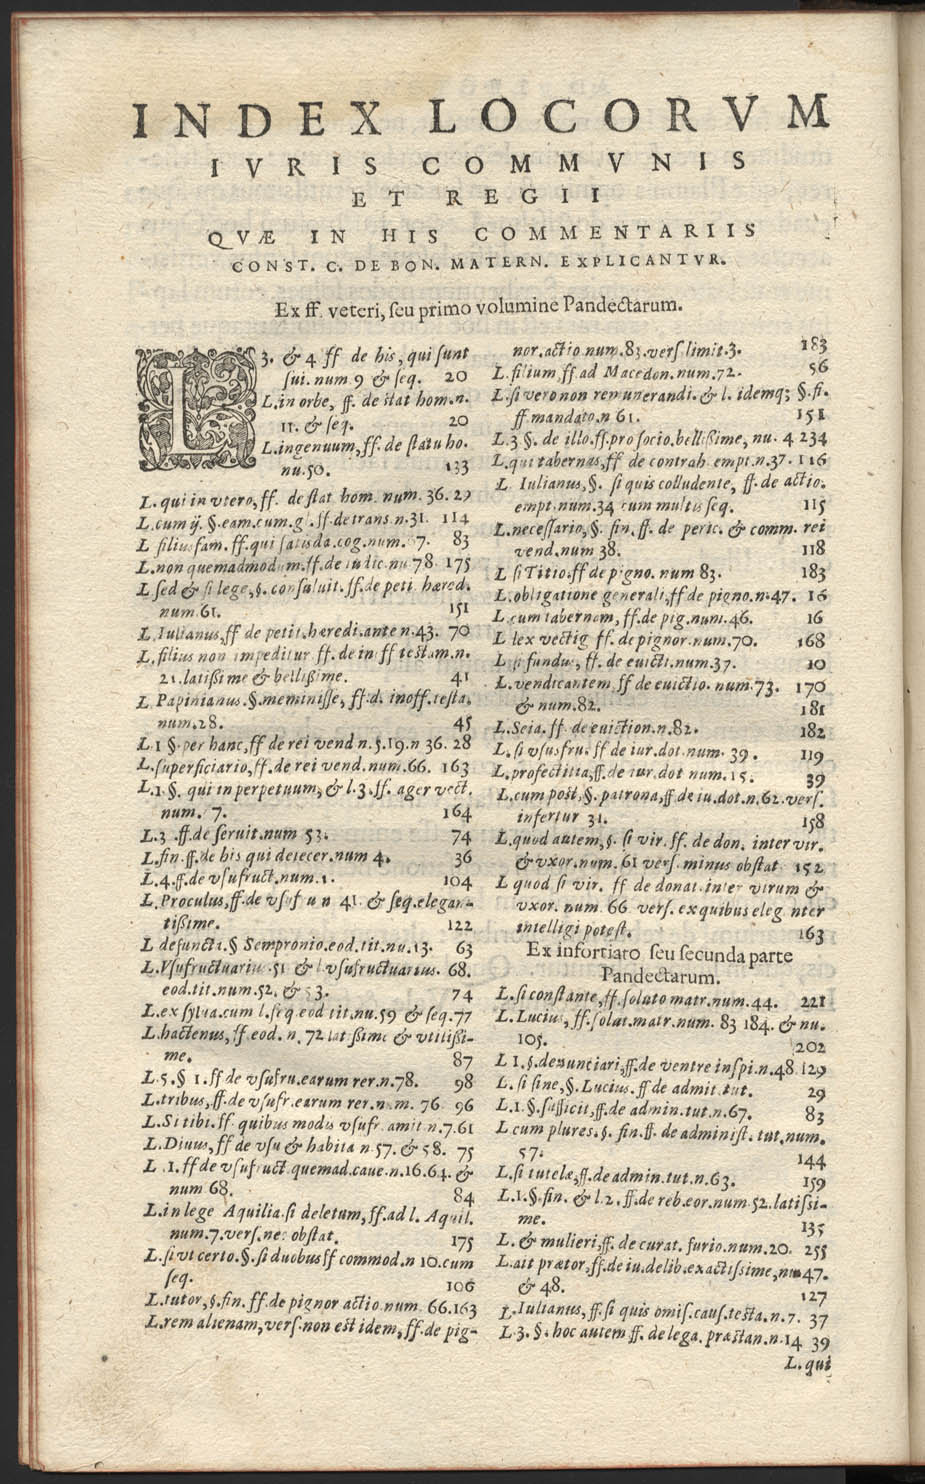 INDEX LOCORVM
IVRIS COMMVNIS
ET REGII
QVÆ IN HIS COMMENTARIIS
CONST. C. DE BON. MATERN. EXPLICANTVR.
Ex ff. veteri, seu primo volumine Pandectarum.
L 3. & 4 ff de his, qui sunt
sui. num 9 & seq. 20
L.in orbe, ff. de stat hom.n.
11. & seq. 20
L.ingenuum, ff. de statu ho.
nu.50. 133
L. qui in vtero, ff. de stat hom. num. 36. 27
L.cum ij. §.eam.cum.gl.ff.de trans.n.31. 114
L filius fam. ff.qui satisda.cog.num. 7. 83
L.non quemadmodum.ff.de iudic.nu 78. 175
L sed & si lege, §. consuluit. ff.de peti. hæred.
num.61. 151
L.Iulianus, ff de petit.hæredi.ante n.43. 70
L.filius non impeditur ff.de in ff testam.n.
21.latißime & bellißime. 41
L.Papinianus.§.meminisse, ff.di inoff.testa.
num.28. 45
L.1 §.per hanc, ff de rei vend n.§.19.n 36. 28
L.superficiario, ff.de rei vend.num.66. 163
L.1.§. qui in perpetuum, & l.3.ff. ager vect.
num. 7. 164
L.3 .ff.de seruit.num 53. 74
L.fin.ff.de his qui deiecer.num 4. 36
L.4.ff.de vsufruct.num.1. 104
L.Proculus, ff.de vsuf u n 41. & seq.elegan-
tißime. 122
L defuncta.§ Sempronio.eod.tit.nu.13. 63
L.Vsufructuariu .51 & l vsufructuarius. 68.
eod.tit.num.52. & 53. 74
L.ex sylua.cum l.seq eod tit.nu.59 & seq.77
L.hactenus, ff eod. n. 72 lat ßime & vtilißi-
me. 87
L.5.§ 1.ff de vsufru.earum rer.n.78. 98
L.tribus, ff.de vsufr.earum rer.num. 76 96
L.Si tibi.ff quibus modis vsufr amit n.7.61
L.Diuus, ff de vsu & habita n 57. & 58. 75
L .1.ff de vsufruct.quemad.caue.n.16.64. &
num 68. 84
L.in lege Aquilia.si deletum, ff.ad l. Aquil.
num.7.vers.nec obstat. 175
L.si vt certo.§.si duobus ff commod.n 10.cum
seq. 106
L.tutor, §.fin. ff.de pignor actio.num. 66.163
L.rem alienam, vers.non est idem, ff.de pig-
nor.actio.num.83.vers.limit.3. 183
L.filium, ff.ad Macedon.num.72. 56
L.si vero non remunerandi.& l. idemq; §.si.
ff.mandato.n 61. 151
L.3 §. de illo.ff.pro socio.bellißime, nu. 4 234
L.qui tabernas, ff de contrah empt.n.37. 116
L Iulianus, §. si quis colludente, ff. de actio.
empt.num.34 cum multis seq. 115
L.necessario, §. fin. ff. de peric. & comm. rei
vend.num 38. 118
L si Titio.ff de pigno. num 83. 183
L.obligatione generali, ff de pigno.n.47. 16
L.cum tabernam, ff.de pig.num.46. 16
L lex vectig ff. de pignor.num.70. 168
L si fundus, ff. de euicti.num.37. 10
L.vendicantem, ff de euictio. num.73. 170
& num.82. 181
L.Seia. ff. de euiction.n.82. 182
L. si vsusfru. ff de iur.dot.num. 39. 119
L.profectitia, ff.de iur.dot num.15. 39
L.cum post, §.patrona, ff de iu.dot.n.62.vers.
infertur 31. 158
L.quod autem, §. si vir. ff. de don. inter vir.
& vxor.num.61 vers. minus obstat 152
L quod si vir. ff de donat.inter virum &
vxor. num.66 vers. ex quibus eleg nter
intelligi potest. 163
Ex infortiato seu secunda parte
Pandectarum.
L.si constante, ff.soluto matr.num.44. 221
L.Lucius, ff.solut.matr.num. 83 184. & nu.
105. 202
L 1.§.denunciari, ff.de ventre inspi.n.48.129
L.si sine, §.Lucius.ff de admit.tut. 29
L.1.§.sufficit, ff.de admin.tut.n.67. 83
L cum plures.§. fin.ff. de administ. tut.num.
57. 144
L.si tutelæ, ff.de admin.tut.n.63. 159
L.1.§.fin. & l.2.ff.de reb.eor.num.52.latissi-
me. 135
L. & mulieri, ff.de curat. furio.num.20. 255
L.ait prætor, ff.de iu.delib.exactissime, nu 47.
& 48. 127
L.Iulianus, ff.si quis omis.caus.testa.n.7. 37
L.3.§.hoc autem ff. de lega. præstan.n.14 39
L.qui